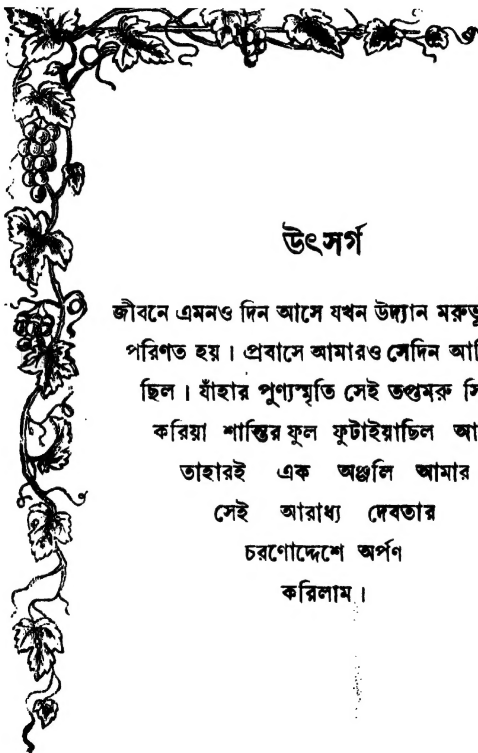 উৎসর্গ
জীবনে এমনও দিন আসে যখন উদ্যান
পরিণত হয়। প্রবাসে আমারও সেদিন
ছিল। যাঁহার পুণ্যস্মৃতি সেই তপ্তমরু
করিয়া শান্তির ফুল ফুটাইয়াছিল
তাহারই এক অঞ্জলি আমার
সেই আরাধ্য দেবতার
চরণোদ্দেশে অর্পণ
করিলাম।